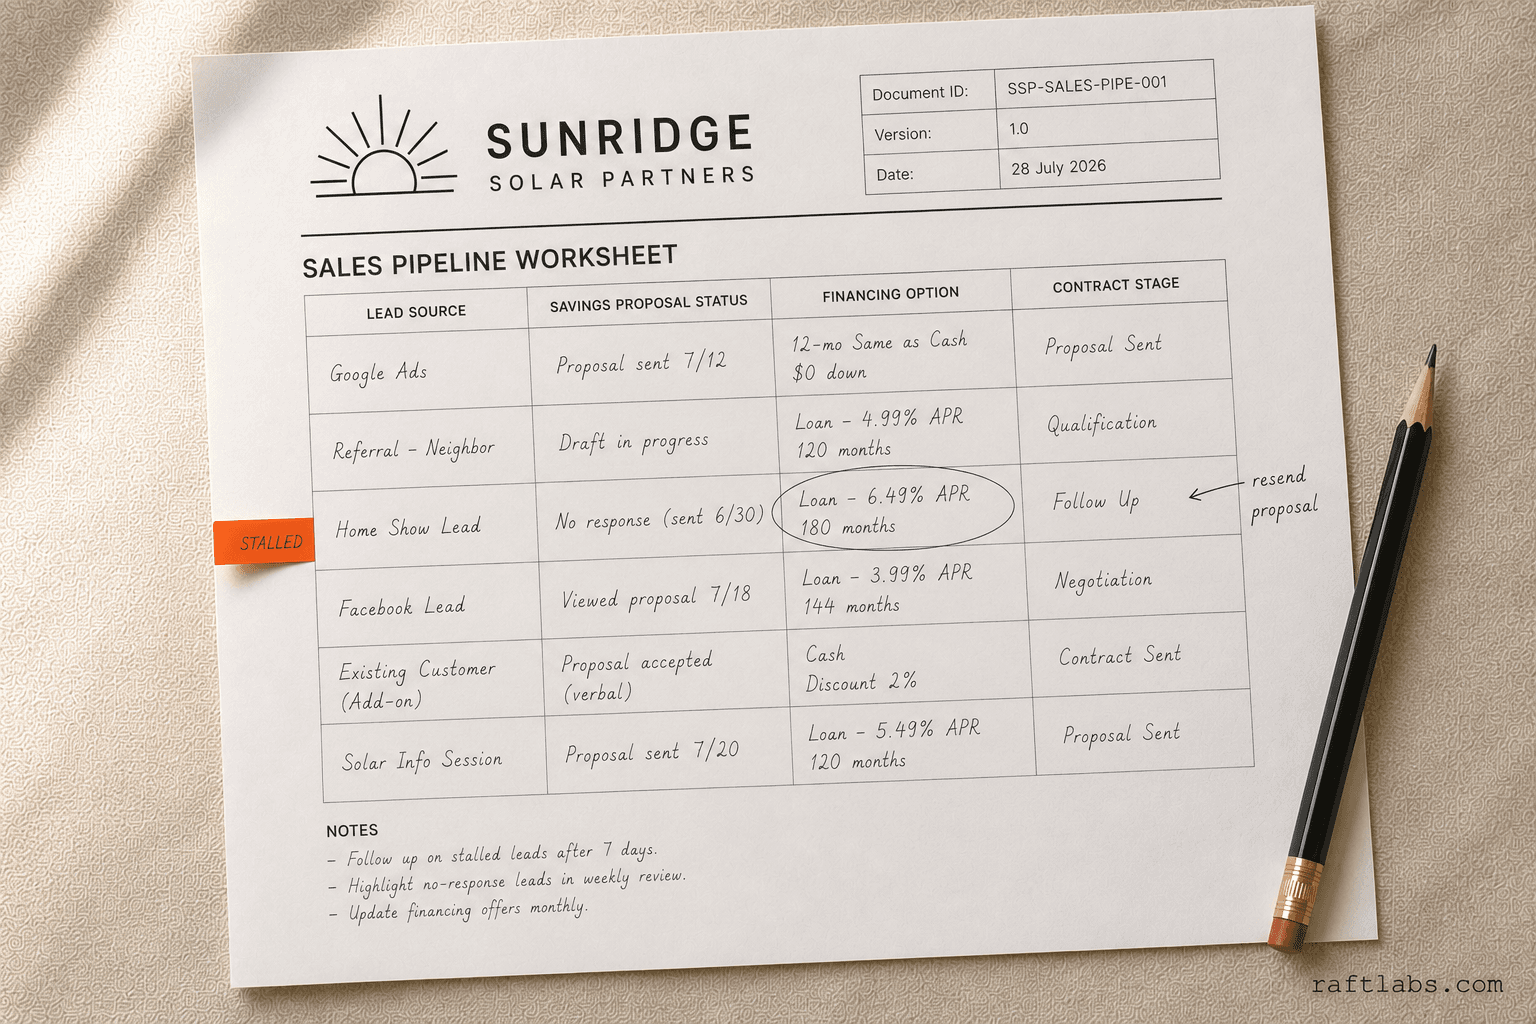 SUNRIDGE
SOLAR PARTNERS
Document ID: SSP-SALES-PIPE-001
Version: 1.0
Date: 28 July 2026
SALES PIPELINE WORKSHEET
LEAD SOURCE SAVINGS PROPOSAL STATUS FINANCING OPTION CONTRACT STAGE
Google Ads
Proposal sent 7/12
12-mo Same as Cash
$0 down
Proposal Sent
Referral – Neighbor
Draft in progress
Loan – 4.99% APR
120 months
Qualification
STALLED
Home Show Lead
No response (sent 6/30)
Loan – 6.49% APR
180 months
Follow Up
resend
proposal
Facebook Lead
Viewed proposal 7/18
Loan – 3.99% APR
144 months
Negotiation
Existing Customer
(Add-on)
Proposal accepted
(verbal)
Cash
Discount 2%
Contract Sent
Solar Info Session
Proposal sent 7/20
Loan – 5.49% APR
120 months
Proposal Sent
NOTES
– Follow up on stalled leads after 7 days.
– Highlight no-response leads in weekly review.
– Update financing offers monthly.
raftlabs.com